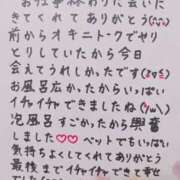 お仕事終わりに会いに
きてくれてありがとう(
前からオキニトークでやり
とりしていたから今日
会えてうれしかったです(
お風呂広かったからいっぱい
イチャイチャできましたね(
泡風呂すごかったから興奮
しました♡♡ベットでもいっぱい
気持ちよくしてくれてありがとう
最後までイチャイチャできて幸せ
でした